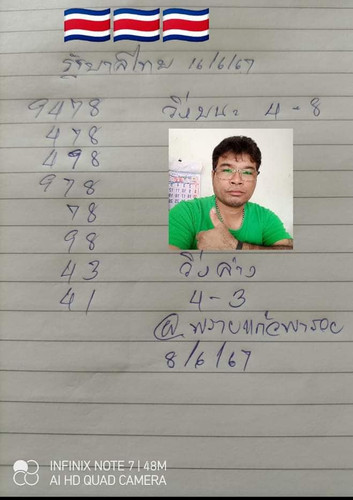 รัฐบาลไทย 16/6/67
9478 วิ่งบน 4-8
478
498
978
78
98
43 วิ่งล่าง
41 4-3
@พรายแก้วพารวย
8/6/67
INFINIX NOTE 7 | 48M
AI HD QUAD CAMERA